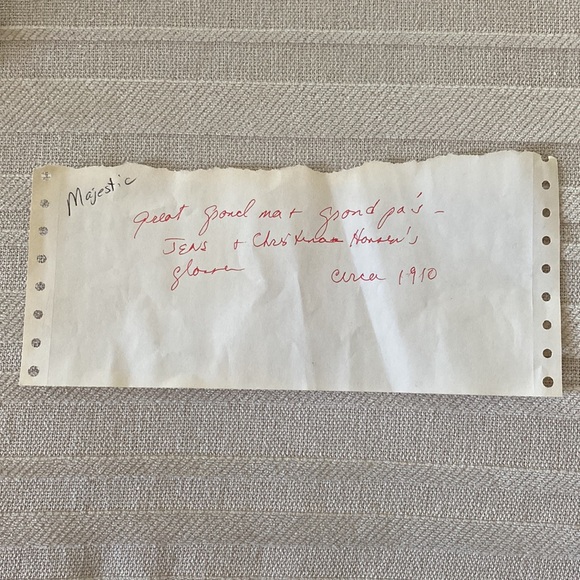 Majestic
great grand ma + grand pa's -
JENS + Christina Hansen's
glasses
circa 1910